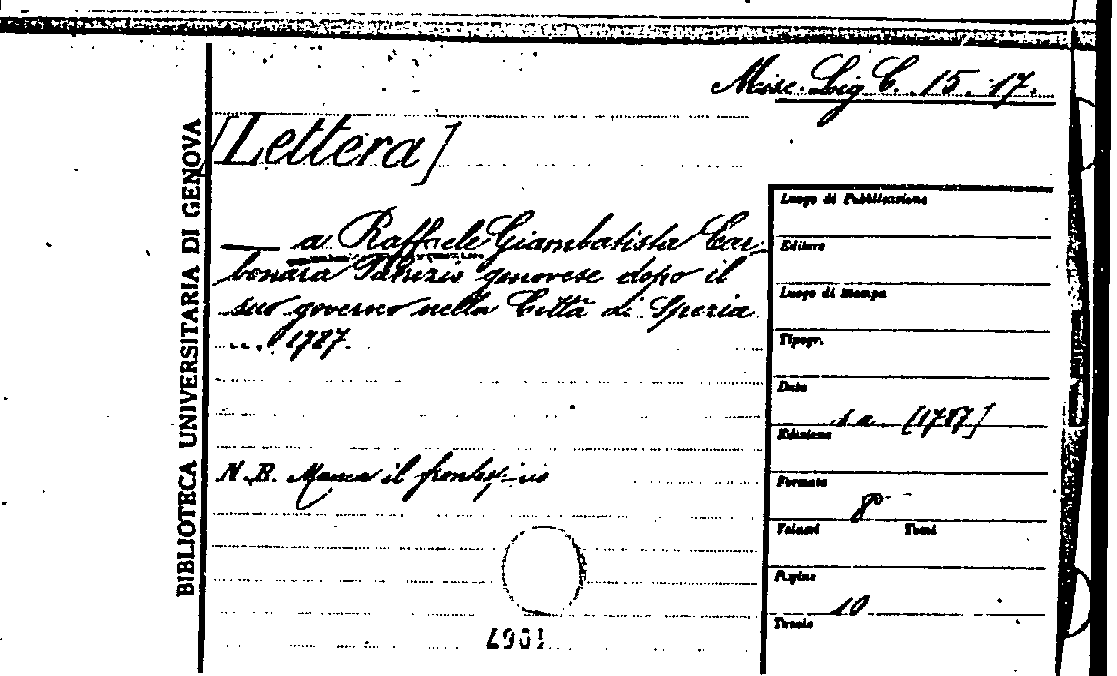 Misc. Lig. C. 15. 17.
[Lettera]
— a Raffaele Giambatista Car-
bonara Patrizio genovese dopo il
suo governo nella Città di Spezia
... 1787.
N. B. Manca il frontespizio
BIBLIOTECA UNIVERSITARIA DI GENOVA
Luogo di Pubblicazione
Editore
Luogo di stampa
Tipogr.
Data
s. a. [1787]
Edizione
Formato
8°
Volumi Tomi
Pagine
10
Tavole